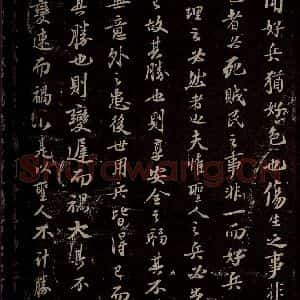 聞好兵猶好色也傷生之事非
色者必死賊民之事非一而好兵
理之必然者也夫惟聖人之兵
故其勝也則享安全之福其不
無意外之患後世用兵皆得已而
其勝也則變遲而禍大其不
變速而禍小是以聖人不計勝
Shufawang.cn